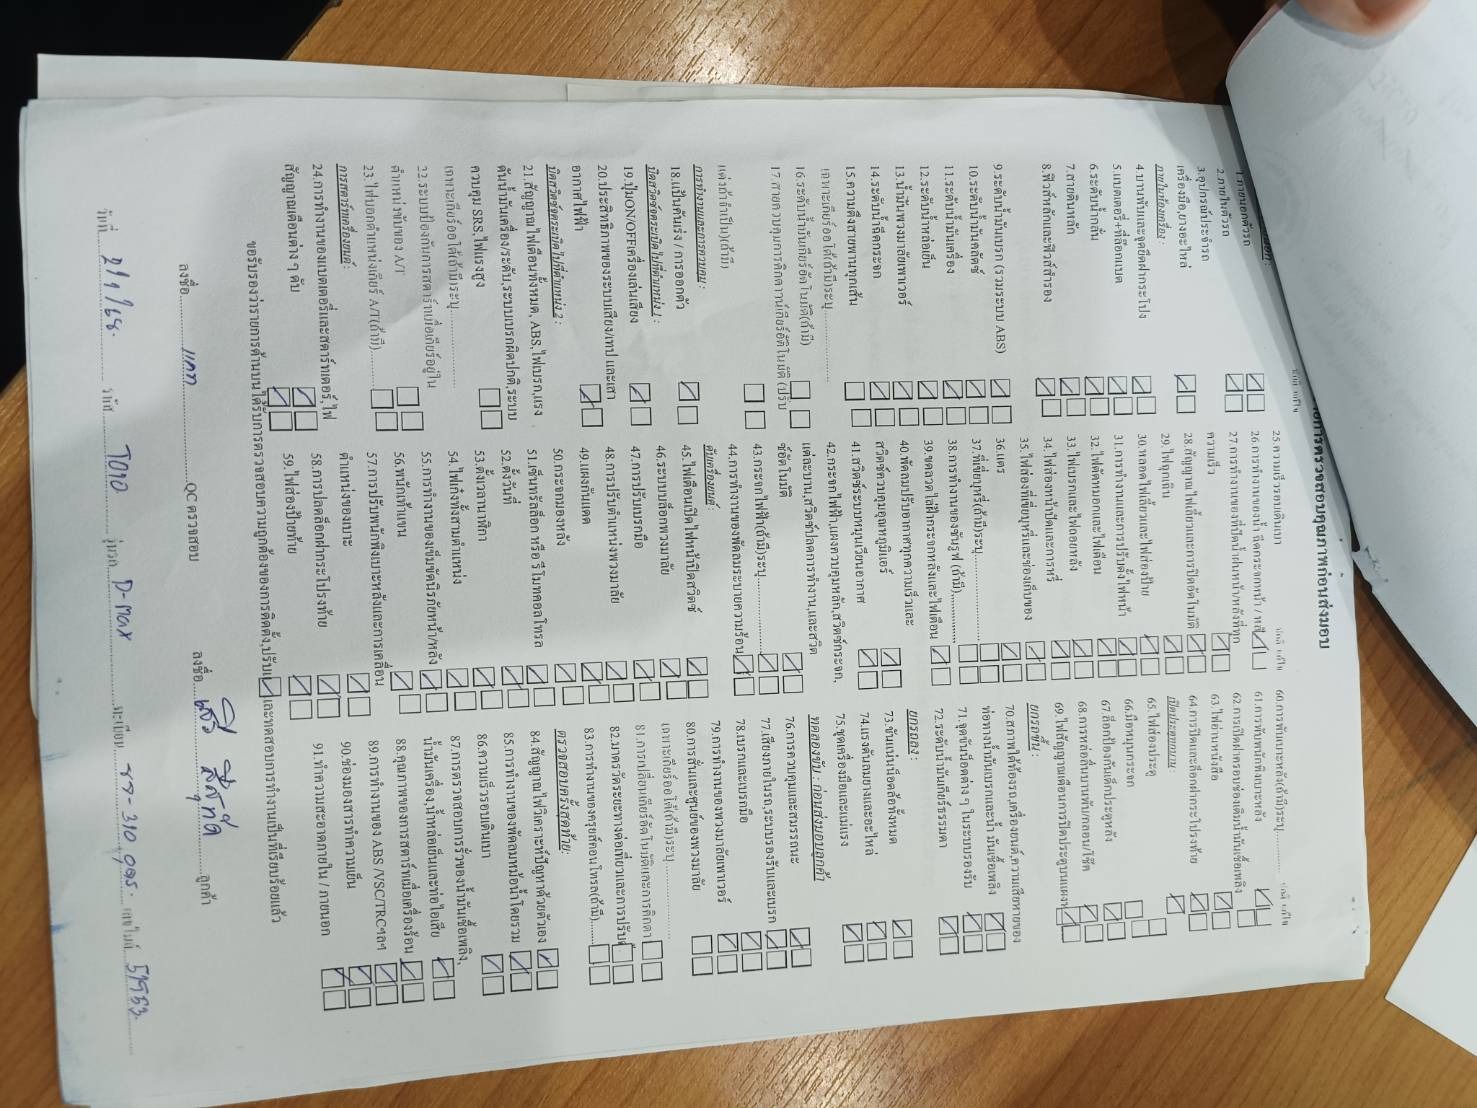 รายการตรวจสอบคุณภาพก่อนส่งมอบ
ปกติ แก้ไข
1.ภายนอกตัวรถ
2.ภายในตัวรถ
3.อุปกรณ์ประจำรถ
เครื่องมือ,ยางอะไหล่
ภายในห้องเครื่อง :
4.บานพับและจุดยึดฝากระโปรง
5.แบตเตอรี่+ที่ล็อกแบต
6.ระดับน้ำกลั่น
7.สายดินหลัก
8.ฟิวส์หลักและฟิวส์สำรอง
9.ระดับน้ำมันเบรก (รวมระบบ ABS)
10.ระดับน้ำมันคลัตช์
11.ระดับน้ำมันเครื่อง
12.ระดับน้ำหล่อเย็น
13.น้ำมันพวงมาลัยเพาเวอร์
14.ระดับน้ำฉีดกระจก
15.ความตึงสายพานทุกเส้น
เฉพาะเกียร์ออโต้(ถ้ามี)ระบุ
16.ระดับน้ำมันเกียร์อัตโนมัติ(ถ้ามี)
17.สายควบคุมการคิกดาวน์เกียร์อัตโนมัติ (ปรับ
แต่งถ้าจำเป็น)(ถ้ามี)
การทำงานและการควบคุม :
18.แป้นคันเร่ง / การออกตัว
บิดสวิตช์จุดระเบิดไปที่ตำแหน่ง 1 :
19.ปุ่มON/OFFเครื่องเล่นเสียง
20.ประสิทธิภาพของระบบเสียง/เทป และเสา
อากาศไฟฟ้า
บิดสวิตช์จุดระเบิดไปที่ตำแหน่ง 2 :
21.สัญญาณไฟเตือนทั้งหมด, ABS,ไฟเบรก,แรง
ดันน้ำมันเครื่อง/ระดับ,ระบบเบรกผิดปกติ,ระบบ
ควบคุม SRS,ไฟแรงสูง
เฉพาะเกียร์ออโต้(ถ้ามี)ระบุ
22.ระบบป้องกันการสตาร์ทเมื่อเกียร์อยู่ใน
ตำแหน่งขับของ A/T
23.ไฟบอกตำแหน่งเกียร์ A/T(ถ้ามี)
การสตาร์ทเครื่องยนต์ :
24.การทำงานของแบตเตอรี่และสตาร์ทเตอร์,ไฟ
สัญญาณเตือนต่าง ๆ ดับ
25.ความเร็วรอบเดินเบา
ปกติ แก้ไข
26.การทำงานของน้ำฉีดกระจกหน้า / หลัง
27.การทำงานของที่ปัดน้ำฝนหน้า/หลังที่ทุก
ความเร็ว
28.สัญญาณไฟเลี้ยวและการปิดอัตโนมัติ
29.ไฟฉุกเฉิน
30.หลอดไฟเลี้ยวและไฟส่องป้าย
31.การทำงานและการปรับตั้งไฟหน้า
32.ไฟตัดหมอกและไฟเตือน
33.ไฟเบรกและไฟถอยหลัง
34.ไฟส่องหน้าปัดและการหรี่
35.ไฟส่องที่เขี่ยบุหรี่และช่องเก็บของ
36.แตร
37.ที่เขี่ยบุหรี่(ถ้ามี)ระบุ
38.การทำงานของซันรูฟ (ถ้ามี)
39.ขดลวดไล่ฝ้ากระจกหลังและไฟเตือน
40.พัดลมปรับอากาศทุกความเร็วและ
สวิตช์ควบคุมอุณหภูมิแอร์
41.สวิตช์ระบบหมุนเวียนอากาศ
42.กระจกไฟฟ้า,แผงควบคุมหลัก,สวิตช์กระจก,
แต่ละบาน,สวิตช์ปลดการทำงาน,และสวิต
ช์อัตโนมัติ
43.กระจกไฟฟ้า(ถ้ามี)ระบุ
44.การทำงานของพัดลมระบายความร้อน
ดับเครื่องยนต์ :
45.ไฟเตือนเปิดไฟหน้าเปิดสวิตช์
46.ระบบบล็อกพวงมาลัย
47.การปรับเบรกมือ
48.การปรับตำแหน่งพวงมาลัย
49.แผงกันแดด
50.กระจกมองหลัง
51.เซ็นทรัลล็อก หรือ รีโมทคอลโทรล
52.ตั้งวันที่
53.ตั้งเวลานาฬิกา
54.ไฟเก๋งทั้งสามตำแหน่ง
55.การทำงานของเข็มขัดนิรภัยหน้า/หลัง
56.พนักเท้าแขน
57.การปรับพนักพิงเบาะหลังและการเคลื่อน
ตำแหน่งของเบาะ
58.การปลดล็อกฝากระโปรงท้าย
59.ไฟส่องป้ายท้าย
60.การพับเบาะหลัง(ถ้ามี)ระบุ
ปกติ แก้ไข
61.การพับพนักพิงเบาะหลัง
62.การเปิดฝาครอบช่องเติมน้ำมันเชื้อเพลิง
63.ไฟอ่านหนังสือ
64.การปิดและล็อกฝากระโปรงท้าย
เปิดประตูทุกบาน :
65.ไฟส่องประตู
66.มือหมุนกระจก
67.ล็อกป้องกันเด็กประตูหลัง
68.การหล่อลื่นบานพับ/กลอน/โช๊ค
69.ไฟสัญญาณเตือนการปิดประตูบนแผง
ยกรถขึ้น :
70.สภาพใต้ท้องรถ,เครื่องยนต์,ความเสียหายของ
ท่อทางน้ำมันเบรกและน้ำ มันเชื้อเพลิง
71.จุดขันน็อตต่าง ๆ ในระบบรองรับ
72.ระดับน้ำมันเกียร์ธรรมดา
ยกรถลง :
73.ขันแน่นน็อตล้อทั้งหมด
74.แรงดันลมยางและอะไหล่
75.ชุดเครื่องมือและแม่แรง
ทดลองขับ : ก่อนส่งมอบลูกค้า
76.การควบคุมและสมรรถนะ
77.เสียงภายในรถ,ระบบรองรับและเบรก
78.เบรกและเบรกมือ
79.การทำงานของพวงมาลัยเพาเวอร์
80.การสั่นและศูนย์ของพวงมาลัย
เฉพาะเกียร์ออโต้(ถ้ามี)ระบุ
81.การเปลี่ยนเกียร์อัตโนมัติและการคิกดา
82.มาตรวัดระยะทางต่อเที่ยวและการปรับตั้
83.การทำงานของครุยส์คอนโทรล(ถ้ามี)
ตรวจสอบครั้งสุดท้าย:
84.สัญญาณไฟวิเคราะห์ปัญหาด้วยตัวเอง
85.การทำงานของพัดลมหม้อน้ำโดยรวม
86.ความเร็วรอบเดินเบา
87.การตรวจสอบการรั่วของน้ำมันเชื้อเพลิง,
น้ำมันเครื่อง,น้ำหล่อเย็นและท่อไอเสีย
88.คุณภาพของการสตาร์ทเมื่อเครื่องร้อน
89.การทำงานของ ABS /VSC/TRCฯลฯ
90.ช่องมองสารทำความเย็น
91.ทำความสะอาดภายใน / ภายนอก
ขอรับรองว่ารายการด้านบนได้รับการตรวจสอบความถูกต้องของการติดตั้ง,ปรับแต่งและทดสอบการทำงานเป็นที่เรียบร้อยแล้ว
ลงชื่อ QC ตรวจสอบ ลงชื่อ ลูกค้า
วันที่ รหัส T090 รุ่นรถ D-max ทะเบียน เลขไมล์